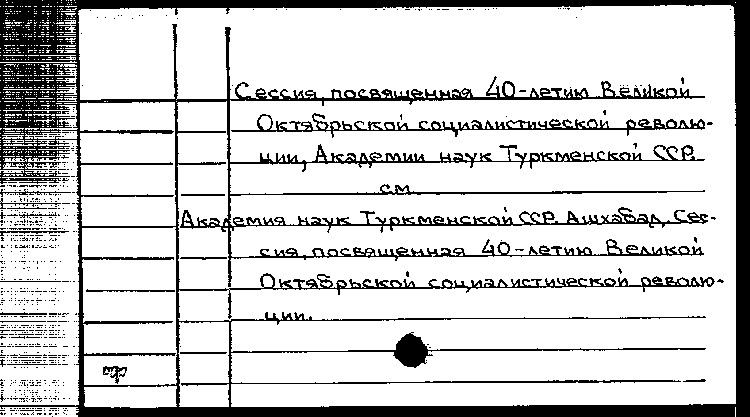 Сессия, посвященная 40-летию Великой
Октябрьской социалистической револю-
ции, Академии наук Туркменской ССР.
см.
Академия наук Туркменской ССР. Ашхабад. Сес-
сия, посвященная 40-летию Великой
Октябрьской социалистической револю-
ции.